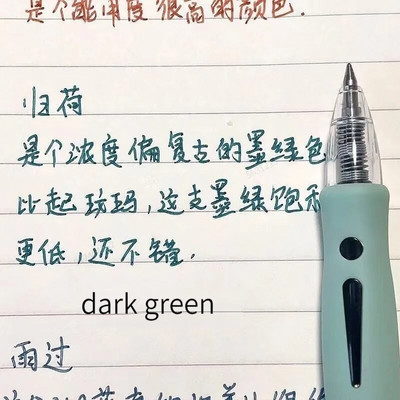 是个能用度很高的颜色.
归荷
是个浓度偏复古的墨绿色
比起玛,这支墨绿饱和
更低,还不错.
dark green
雨过